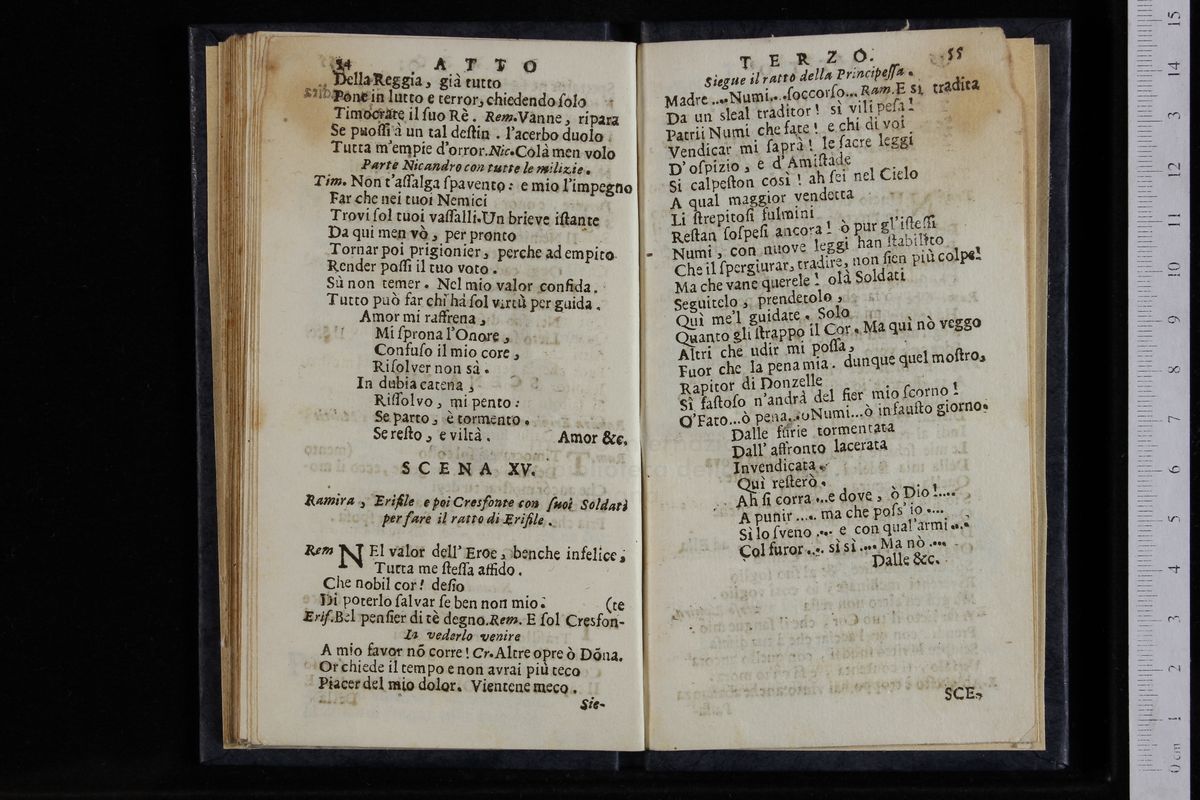 54 ATTO
Della Reggia, già tutto
Pone in lutto e terror, chiedendo ſolo
Timocrate il ſuo Rè. Rem. Vanne, ripara
Se puoſſi à un tal deſtin. l'acerbo duolo
Tutta m'empie d'orror. Nic. Colà men volo
Parte Nicandro con tutte le milizie.
Tim. Non t'aſſalga ſpavento: e mio l'impegno
Far che nei tuoi Nemici
Trovi ſol tuoi vaſſalli. Un brieve iſtante
Da qui men vò, per pronto
Tornar poi prigionier, perche ad empito
Render poſſi il tuo voto.
Sù non temer. Nel mio valor confida.
Tutto può far chi hà ſol virtù per guida.
Amor mi raffrena,
Mi ſprona l'Onore,
Confuſo il mio core,
Riſolver non sà.
In dubia catena,
Riſſolvo, mi pento:
Se parto, è tormento.
Se reſto, e viltà. Amor &c.
SCENA XV.
Ramira, Erifile e poi Cresfonte con ſuoi Soldati
per fare il ratto di Erifile.
Rem NEl valor dell'Eroe, benche infelice,
Tutta me ſteſſa affido.
Che nobil cor! deſio
Di poterlo ſalvar ſe ben non mio. (te
Erif. Bel penſier di tè degno. Rem. E ſol Cresfon-
In vederlo venire
A mio favor nõ corre! Cr. Altre opre ò Dõna.
Or chiede il tempo e non avrai più teco
Piacer del mio dolor. Vientene meco.
Sie-
TERZO. 55
Siegue il ratto della Principeſſa.
Madre .... Numi... ſoccorſo... Ram. E sì tradita
Da un sleal traditor! sì vilipeſa!
Patrii Numi che fate! e chi di voi
Vendicar mi ſaprà! le ſacre leggi
D'oſpizio, e d'Amiſtade
Si calpeſton così! ah ſei nel Cielo
A qual maggior vendetta
Li ſtrepitoſi fulmini
Reſtan ſoſpeſi ancora! ò pur gl'iſteſſi
Numi, con nuove leggi han ſtabilito
Che il ſpergiurar, tradire, non ſien più colpe!
Ma che vane querele! olà Soldati
Seguitelo, prendetolo,
Quì me'l guidate. Solo
Quanto gli ſtrappo il Cor. Ma quì nò veggo
Altri che udir mi poſſa,
Fuor che la pena mia. dunque quel moſtro,
Rapitor di Donzelle
Sì faſtoſo n'andrà del fier mio ſcorno!
O'Fato...ò pena...ò Numi...ò infauſto giorno.
Dalle furie tormentata
Dall'affronto lacerata
Invendicata
Quì reſterò.
Ah ſi corra ...e dove, ò Dio!....
A punir ..... ma che poſs'io ....
Sì lo ſveno .... e con qual'armi ....
Col furor .... sì sì .... Ma nò ....
Dalle &c.
SCE-